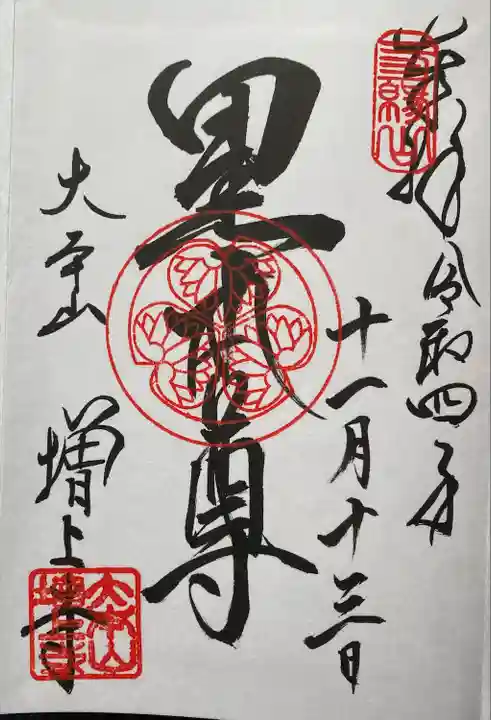 奉拝 令和四年
十一月十三日
黒本尊
大本山
増上寺
三縁山
大本山
増上寺